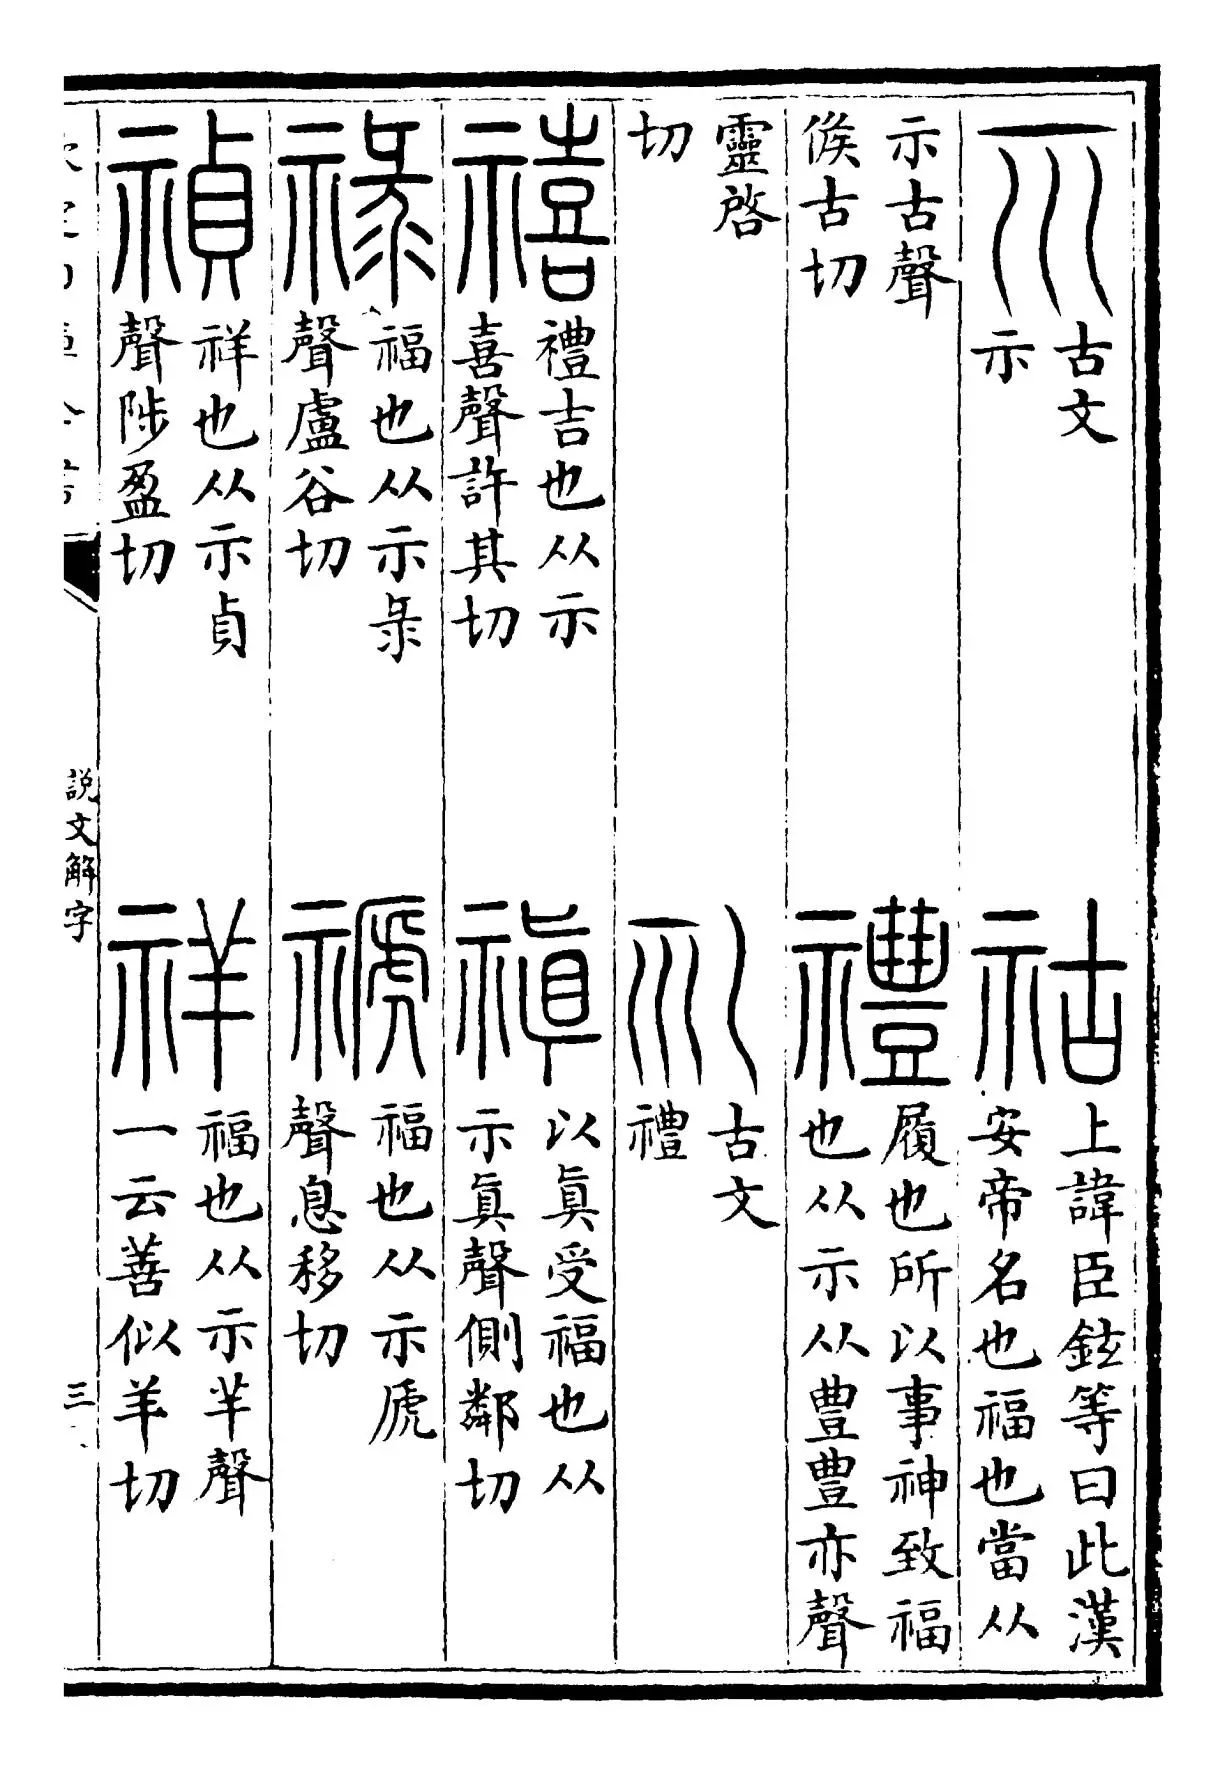 示
古文
示
祜
上諱臣鉉等曰此漢
安帝名也福也當从
示古聲
候古切
禮
履也所以事神致福
也从示从豊豊亦聲
靈啓
切
𠃞
古文
禮
禧
禮吉也从示
喜聲許其切
禛
以眞受福也从
示眞聲側鄰切
祿
福也从示彔
聲盧谷切
禠
福也从示虒
聲息移切
禎
祥也从示貞
聲陟盈切
祥
福也从示羊聲
一云善似羊切
説文解字
三